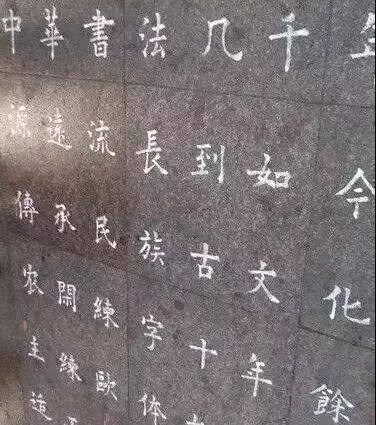 中華書法几千
源遠流長到如今
傳承民族古文化
农閑練字十年餘
主練歐体
造